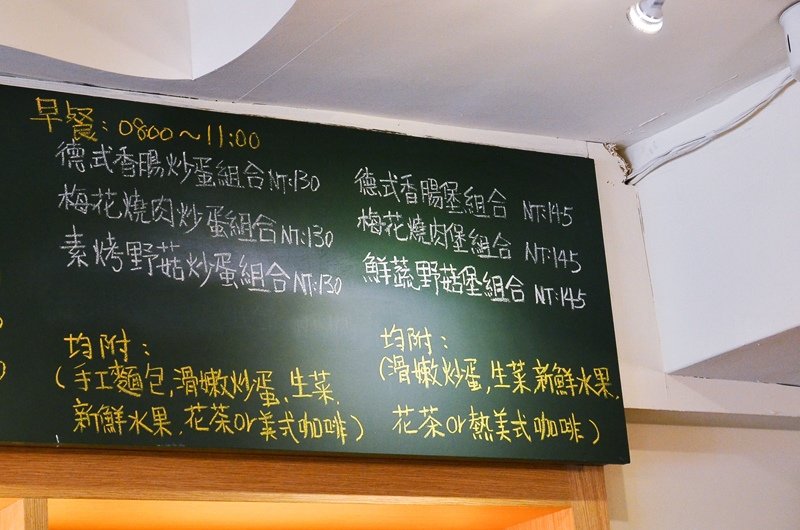 早餐：0800～11:00
德式香腸炒蛋組合NT:130
梅花燒肉炒蛋組合NT:130
素烤野菇炒蛋組合NT:130
均附：
(手工麵包,滑嫩炒蛋、生菜、
新鮮水果、花茶or美式咖啡)
德式香腸堡組合 NT:145
梅花燒肉堡組合 NT:145
鮮蔬野菇堡組合 NT:145
均附：
(滑嫩炒蛋,生菜,新鮮水果,
花茶or熱美式咖啡)